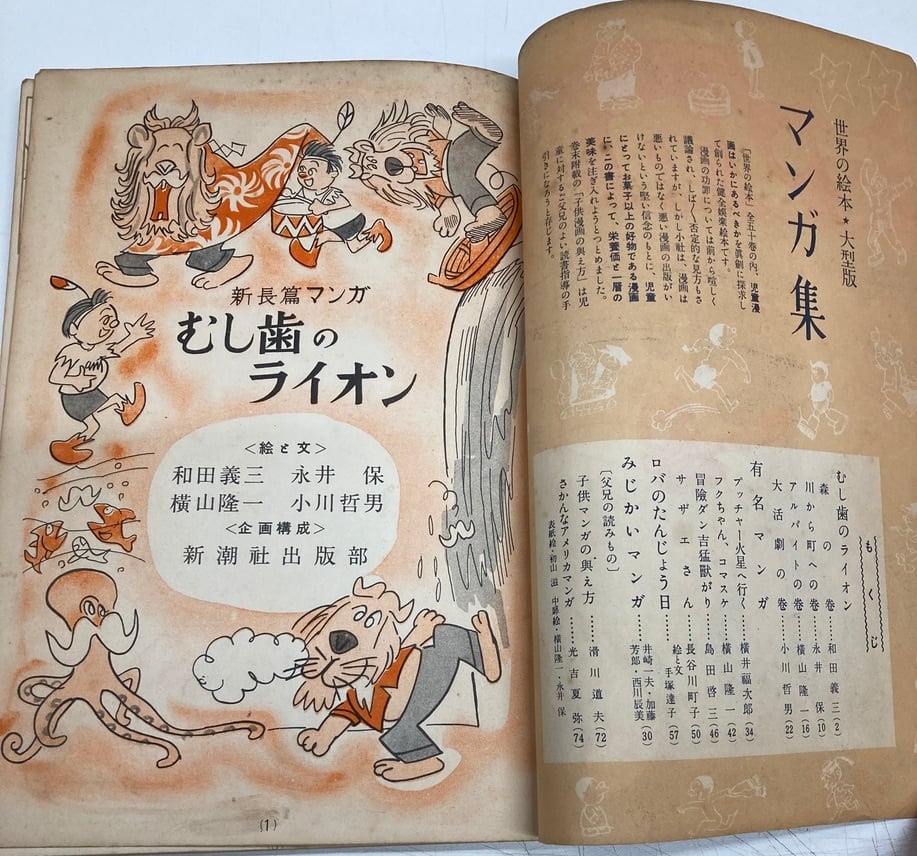 世界の絵本★大型版
マンガ集
「世界の絵本」全五十巻の内、児童漫
画はいかにあるべきかを眞剣に探求し
て創られた健全娯楽絵本です。
漫画の功罪については前から喧しく
議論され、しばしば否定的な見方もさ
れていますが、しかし小社は、漫画は
悪いものではなく悪い漫画の出版がい
けないという堅い信念のもとに、児童
にとつてお菓子以上の好物である漫画
に、この書によつて、栄養価と一層の
美味を注ぎ入れようとつとめました。
巻末附載の「子供漫画の與え方」は児
童に対するご父兄のよい読書指導の手
引きになろうと存じます。
もくじ
むし歯のライオン
森の巻……和田義三(2)
川から町への巻……永井保(10)
アルバイトの巻……横山隆一(16)
大活劇の巻……小川哲男(22)
有名マンガ
プッチャー火星へ行く……横井福次郎(34)
フクちゃん、コマスケ……横山隆一(42)
冒険ダン吉猛獣がり……島田啓三(46)
サザエさん……長谷川町子(50)
ロバのたんじょう日……絵と文 手塚達子(57)
みじかいマンガ……井崎一夫・加藤芳郎・西川辰美(30)
〔父兄の読みもの〕
子供マンガの與え方……滑川道夫(72)
さかんなアメリカマンガ……光吉夏弥(74)
表紙絵・初山滋 中扉絵・横山隆一・永井保
新長篇マンガ
むし歯の
ライオン
＜絵と文＞
和田義三 永井保
横山隆一 小川哲男
＜企画構成＞
新潮社出版部
(1)